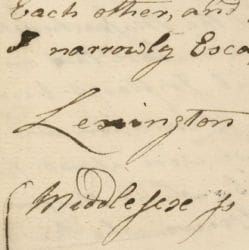 Each other, and
I narrowly Esca
Lexington
Middlesex ss